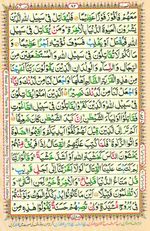 مَعَهُمْ فَأَفُوزَ فَوْزًا عَظِيمًا فَلْيُقَاتِلْ فِي سَبِيلِ اللَّهِ
الَّذِينَ يَشْرُونَ الْحَيٰوةَ الدُّنْيَا بِالْآخِرَةِ وَمَنْ يُقَاتِلْ فِي
سَبِيلِ اللَّهِ فَيُقْتَلْ أَوْ يَغْلِبْ فَسَوْفَ نُؤْتِيهِ أَجْرًا عَظِيمًا وَمَا
لَكُمْ لَا تُقَاتِلُونَ فِي سَبِيلِ اللَّهِ وَالْمُسْتَضْعَفِينَ مِنَ
الرِّجَالِ وَالنِّسَاءِ وَالْوِلْدَانِ الَّذِينَ يَقُولُونَ رَبَّنَا أَخْرِجْنَا
مِنْ هٰذِهِ الْقَرْيَةِ الظَّالِمِ أَهْلُهَا وَاجْعَلْ لَنَا مِنْ لَدُنْكَ وَلِيًّا
وَاجْعَلْ لَنَا مِنْ لَدُنْكَ نَصِيرًا الَّذِينَ آمَنُوا يُقَاتِلُونَ فِي
سَبِيلِ اللَّهِ وَالَّذِينَ كَفَرُوا يُقَاتِلُونَ فِي سَبِيلِ الطَّاغُوتِ
فَقَاتِلُوا أَوْلِيَاءَ الشَّيْطٰنِ إِنَّ كَيْدَ الشَّيْطٰنِ كَانَ ضَعِيفًا
أَلَمْ تَرَ إِلَى الَّذِينَ قِيلَ لَهُمْ كُفُّوا أَيْدِيَكُمْ وَأَقِيمُوا الصَّلٰوةَ
وَآتُوا الزَّكٰوةَ فَلَمَّا كُتِبَ عَلَيْهِمُ الْقِتَالُ إِذَا فَرِيقٌ مِنْهُمْ
يَخْشَوْنَ النَّاسَ كَخَشْيَةِ اللَّهِ أَوْ أَشَدَّ خَشْيَةً وَقَالُوا رَبَّنَا
لِمَ كَتَبْتَ عَلَيْنَا الْقِتَالَ لَوْلَا أَخَّرْتَنَا إِلَى أَجَلٍ قَرِيبٍ قُلْ
مَتَاعُ الدُّنْيَا قَلِيلٌ وَالْآخِرَةُ خَيْرٌ لِمَنِ اتَّقَى وَلَا تُظْلَمُونَ
فَتِيلًا أَيْنَمَا تَكُونُوا يُدْرِكْكُمُ الْمَوْتُ وَلَوْ كُنْتُمْ فِي بُرُوجٍ
مُشَيَّدَةٍ وَإِنْ تُصِبْهُمْ حَسَنَةٌ يَقُولُوا هٰذِهِ مِنْ